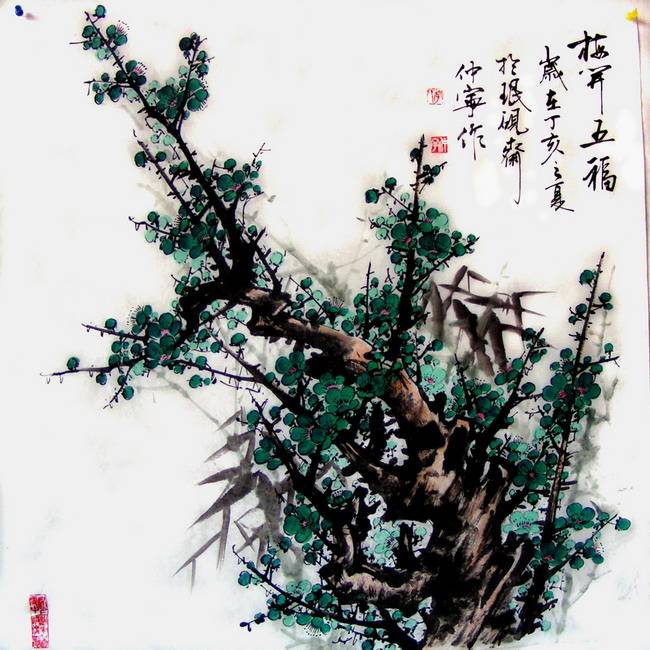 梅开五福
岁在丁亥之夏
於珉砚斋
仲寧作